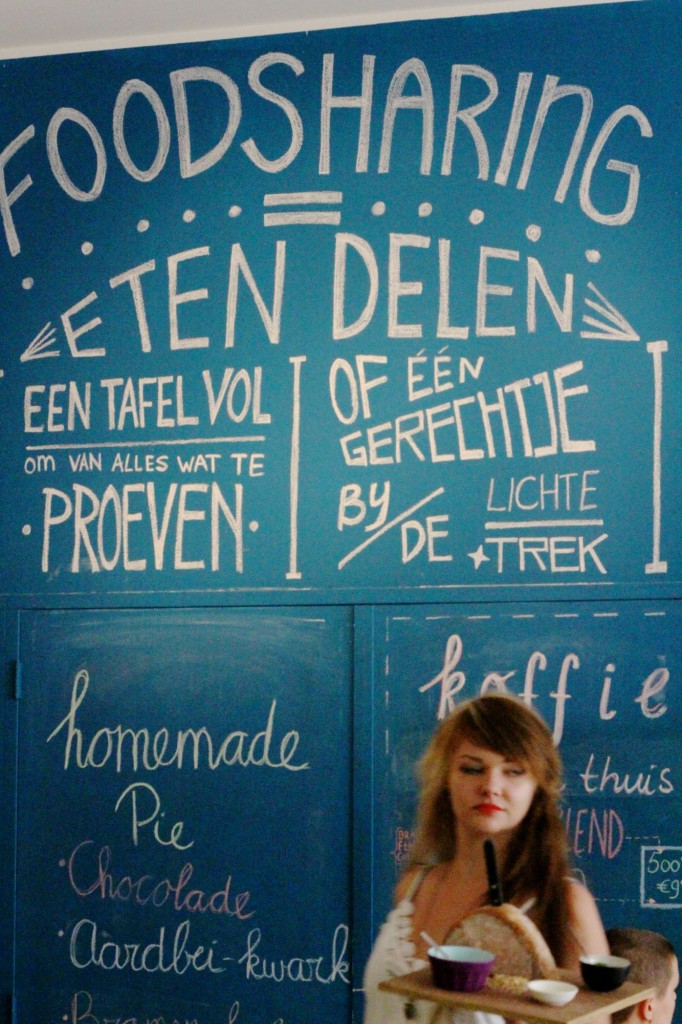 FOODSHARING
=
ETEN DELEN
EEN TAFEL VOL
om VAN ALLES WAT TE
·PROEVEN·
OF ÉÉN
GERECHTJE
BY/DE
LICHTE
TREK
homemade
Pie
·Chocolade
·Aardbei-kwark
koffie
thuis
500